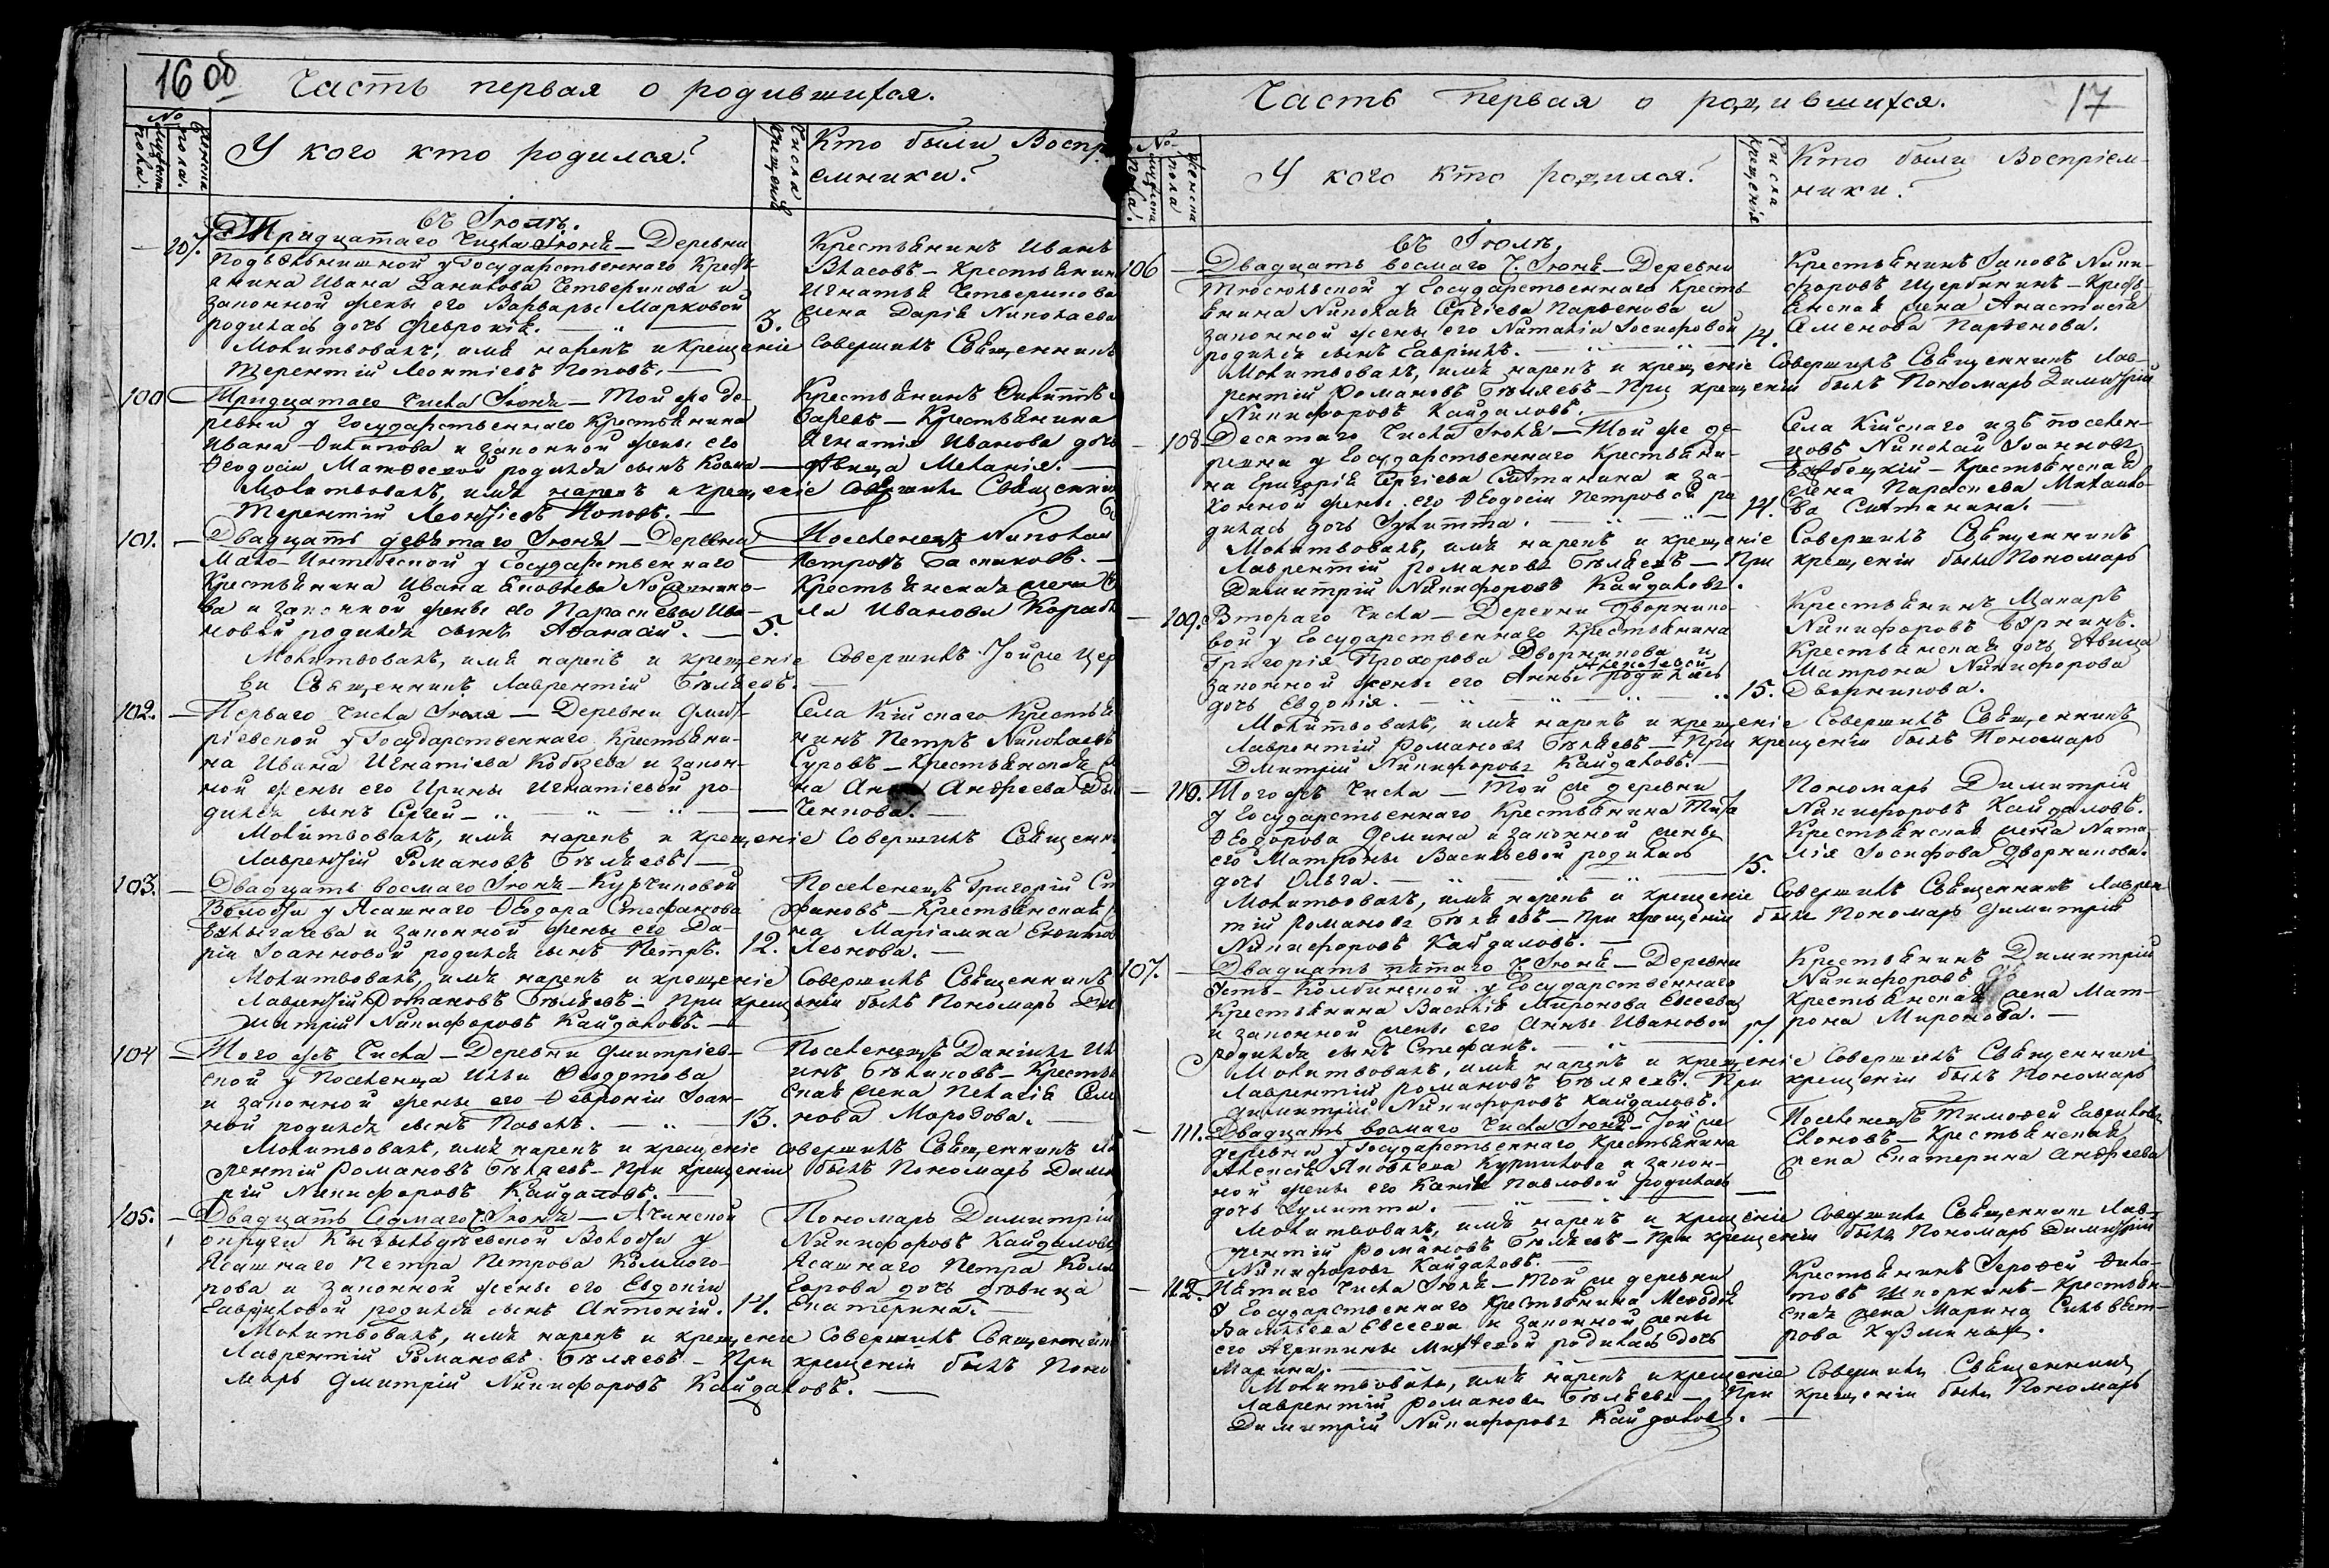 16 об
Часть первая о родившихся.
№
мужеска пола.
женска пола.
У кого кто родился?
Числа крещенія
Кто были Воспрі-
емники?
въ Іюлѣ.
107. Тридцатаго Числа Іюня — Деревни
Государственнаго Кресть-
янина Ивана Данилова Четверикова и
законной жены его Варвары Марковой
родилась дочь Февронія. — 3.
Крестьянинъ Иванъ
Власовъ — Крестьянина
Игнатья Четверикова
жена Дарія Николаева
Молитвовалъ, имя нарекъ и крещеніе Совершилъ Священникъ
Терентій Леонтіевъ Поповъ. —
100 Тридцатаго Числа Іюня — Той же де-
ревни у Государственнаго Крестьянина
Ивана и законной жены его
Ѳеодосіи родился сынъ Косма —
Крестьянинъ
Крестьянина
Игнатія Иванова дочь
дѣвица Меланія. —
Молитвовалъ, имя нарекъ и крещеніе Совершилъ Священникъ
Терентій Леонтіевъ Поповъ. —
101. — Двадцать девятаго Іюня — Деревни
Мало- у Государственнаго
Крестьянина Ивана
ва и законной жены его Параскевы Ива-
новой родился сынъ Аѳанасій. — 5.
Поселенецъ Николай
Петровъ
Крестьянская жена
Иванова
Молитвовалъ, имя нарекъ и крещеніе Совершилъ Той же Цер
ви Священникъ Лаврентій Бѣляевъ. —
102. — Перваго Числа Іюля — Деревни Дмит-
ріевской у Государственнаго Крестьяни-
на Ивана Игнатіева Кобзева и закон-
ной жены его Ирины Игнатіевой ро-
дился сынъ Сергей —
Села Кійскаго Крестья
нинъ Петръ Николаевъ
Суровъ — Крестьянская
на Анна Андреева
Молитвовалъ, имя нарекъ и крещеніе Совершилъ Священни
Лаврентій Романовъ Бѣляевъ. —
103. — Двадцать восмаго Іюня — Курчиковой
Волости у Ясашнаго Ѳеодора Стефанова
и законной жены его Да-
ріи Іоанновой родился сынъ Петръ. 12.
Поселенецъ Григорій
Крестьянская
на Маріамна
Леонова. —
Молитвовалъ, имя нарекъ и крещеніе Совершилъ Священникъ
Лаврентій Романовъ Бѣляевъ — При крещеніи былъ Пономарь Ди
митрій Никифоровъ Кайдаловъ. —
104 — Того же Числа — Деревни Дмитріев-
ской у Поселенца Ильи
и законной жены его Февроніи Іоан-
ной родился сынъ Павелъ. — 13.
Поселенецъ Даніилъ
инъ — Крестьян
ская жена Пелагія Сем
нова Морозова. —
Молитвовалъ, имя нарекъ и крещеніе совершилъ Священникъ Ла
рентій Романовъ Бѣляевъ — При крещеніи былъ Пономарь Димит
рій Никифоровъ Кайдаловъ. —
105. — Двадцать Седмаго Ч. Іюня — Ачинской
округи Волости у
Ясашнаго Петра Петрова
и законной жены его Евдокіи
Гавриловой родился сынъ Антоній. 14.
Пономарь Димитрій
Никифоровъ Кайдаловъ
Ясашнаго Петра
дочь дѣвица
Екатерина. —
Молитвовалъ, имя нарекъ и крещеніе Совершилъ Священникъ
Лаврентій Романовъ Бѣляевъ — При крещеніи былъ Поно
марь Дмитрій Никифоровъ Кайдаловъ. —
Часть первая о родившихся.
17
№
мужеска пола.
женска пола
У кого кто родился?
Числа крещенія
Кто были Воспріем-
ники?
въ Іюлѣ,
106 — Двадцать восмаго Ч. Іюня — Деревни
Тюсюльской у Государственнаго Кресть-
янина Николая Сергіева Парѳенова и
законной жены его Наталіи Іосифовой
родился сынъ Гавріилъ. — 14.
Крестьянинъ Іаковъ Ники-
форовъ Щербининъ — Кресть-
янская жена Анастасія
Семенова Парѳенова.
Молитвовалъ, имя нарекъ и крещеніе Совершилъ Священникъ Лав-
рентій Романовъ Бѣляевъ — При крещеніи былъ Пономарь Димитрій
Никифоровъ Кайдаловъ. —
— 108 Десятаго Числа Іюля — Той же де-
ревни у Государственнаго Крестьяни-
на Григорія Сергіева и за-
конной жены его Ѳеодосіи Петровой ро
дилась дочь Іулитта. — 14.
Села Кійскаго изъ поселен-
цовъ Николай Іоанновъ
Крестьянская
жена Параскева Михайло-
ва
Молитвовалъ, имя нарекъ и крещеніе Совершилъ Священникъ
Лаврентій Романовъ Бѣляевъ — При крещеніи былъ Пономарь
Димитрій Никифоровъ Кайдаловъ.
— 109. Втораго Числа — Деревни Дворнико-
вой у Государственнаго Крестьянина
Григорія Прохорова Дворникова и
Алексѣевой
законной жены его Анны родилась
дочь Евдокія. — 15.
Крестьянинъ Макаръ
Никифоровъ
Крестьянская дочь дѣвица
Матрона Никифорова
Дворникова.
Молитвовалъ, имя нарекъ и крещеніе Совершилъ Священникъ
Лаврентій Романовъ Бѣляевъ — При крещеніи былъ Пономарь
Дмитрій Никифоровъ Кайдаловъ. —
— 110. Того же Числа — Той же деревни
у Государственнаго Крестьянина Тита
Ѳеодорова Демина и законной жены
его Матроны Васильевой родилась
дочь Ольга. — 15.
Пономарь Димитрій
Никифоровъ Кайдаловъ.
Крестьянская жена Ната-
лія Іосифова Дворникова.
Молитвовалъ, имя нарекъ и крещеніе Совершилъ Священникъ Лаврен
тій Романовъ Бѣляевъ — При крещеніи былъ Пономарь Димитрій
Никифоровъ Кайдаловъ. —
107. — Двадцать пятаго Ч. Іюня — Деревни
Усть-Колбинской у Государственнаго
Крестьянина Василія Миронова Евсеева
и законной жены его Анны Ивановой
родился сынъ Стефанъ. — 17
Крестьянинъ Димитрій
Никифоровъ
Крестьянская жена Мат-
рона Миронова. —
Молитвовалъ, имя нарекъ и крещеніе Совершилъ Священникъ
Лаврентій Романовъ Бѣляевъ. При крещеніи былъ Пономарь
Димитрій Никифоровъ Кайдаловъ.
— 111. Двадцать восмаго Числа Іюня — Той же
деревни у Государственнаго Крестьянина
Алексія Яковлева и закон-
ной жены его Павловой родилась
дочь Іулитта. —
Поселенецъ Тимоѳей Гавриловъ
Крестьянская
жена Екатерина Андреева
Молитвовалъ, имя нарекъ и крещеніе Совершилъ Священникъ Лав-
рентій Романовъ Бѣляевъ — При крещеніи былъ Пономарь Димитрій
Никифоровъ Кайдаловъ. —
— 112. Пятаго Числа Іюля — Той же деревни
У Государственнаго Крестьянина Меѳодія
Васильева Евсеева и законной жены
его Агрипины родилась дочь
Марина. —
Крестьянинъ Іероѳей
Крестьян-
ская жена Марина Сильвест-
рова Кузмина.
Молитвовалъ, имя нарекъ и крещеніе Совершилъ Священникъ
Лаврентій Романовъ Бѣляевъ — При крещеніи былъ Пономарь
Димитрій Никифоровъ Кайдаловъ. —